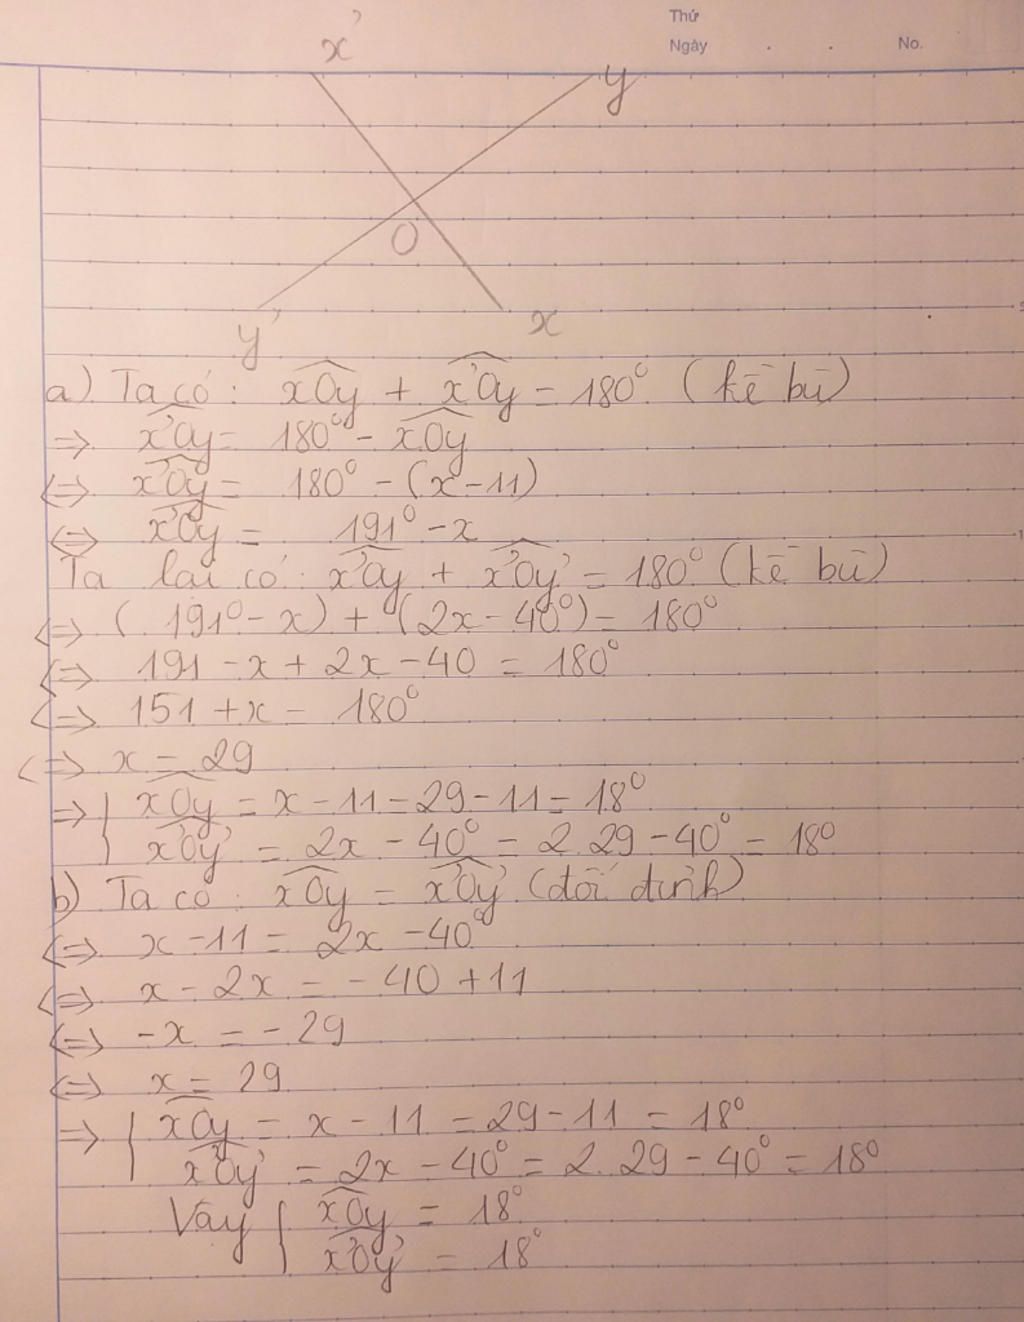 Thứ
Ngày . . No.
x'
y
O
y'
x
a) Ta có: xOy + x'Oy = 180° (kề bù)
=> x'Oy = 180° - xOy
<=> x'Oy = 180° - (x - 11)
<=> x'Oy = 191° - x
Ta lại có: x'Oy + x'Oy' = 180° (kề bù)
<=> (191° - x) + (2x - 40°) = 180°
<=> 191 - x + 2x - 40 = 180°
<=> 151 + x = 180°
<=> x = 29
=> { xOy = x - 11 = 29 - 11 = 18°
x'Oy' = 2x - 40° = 2.29 - 40° = 18°
b) Ta có: xOy = x'Oy' (đối đỉnh)
<=> x - 11 = 2x - 40°
<=> x - 2x = - 40 + 11
<=> -x = - 29
<=> x = 29
=> { xOy = x - 11 = 29 - 11 = 18°
x'Oy' = 2x - 40° = 2.29 - 40° = 18°
Vậy { xOy = 18°
x'Oy' = 18°